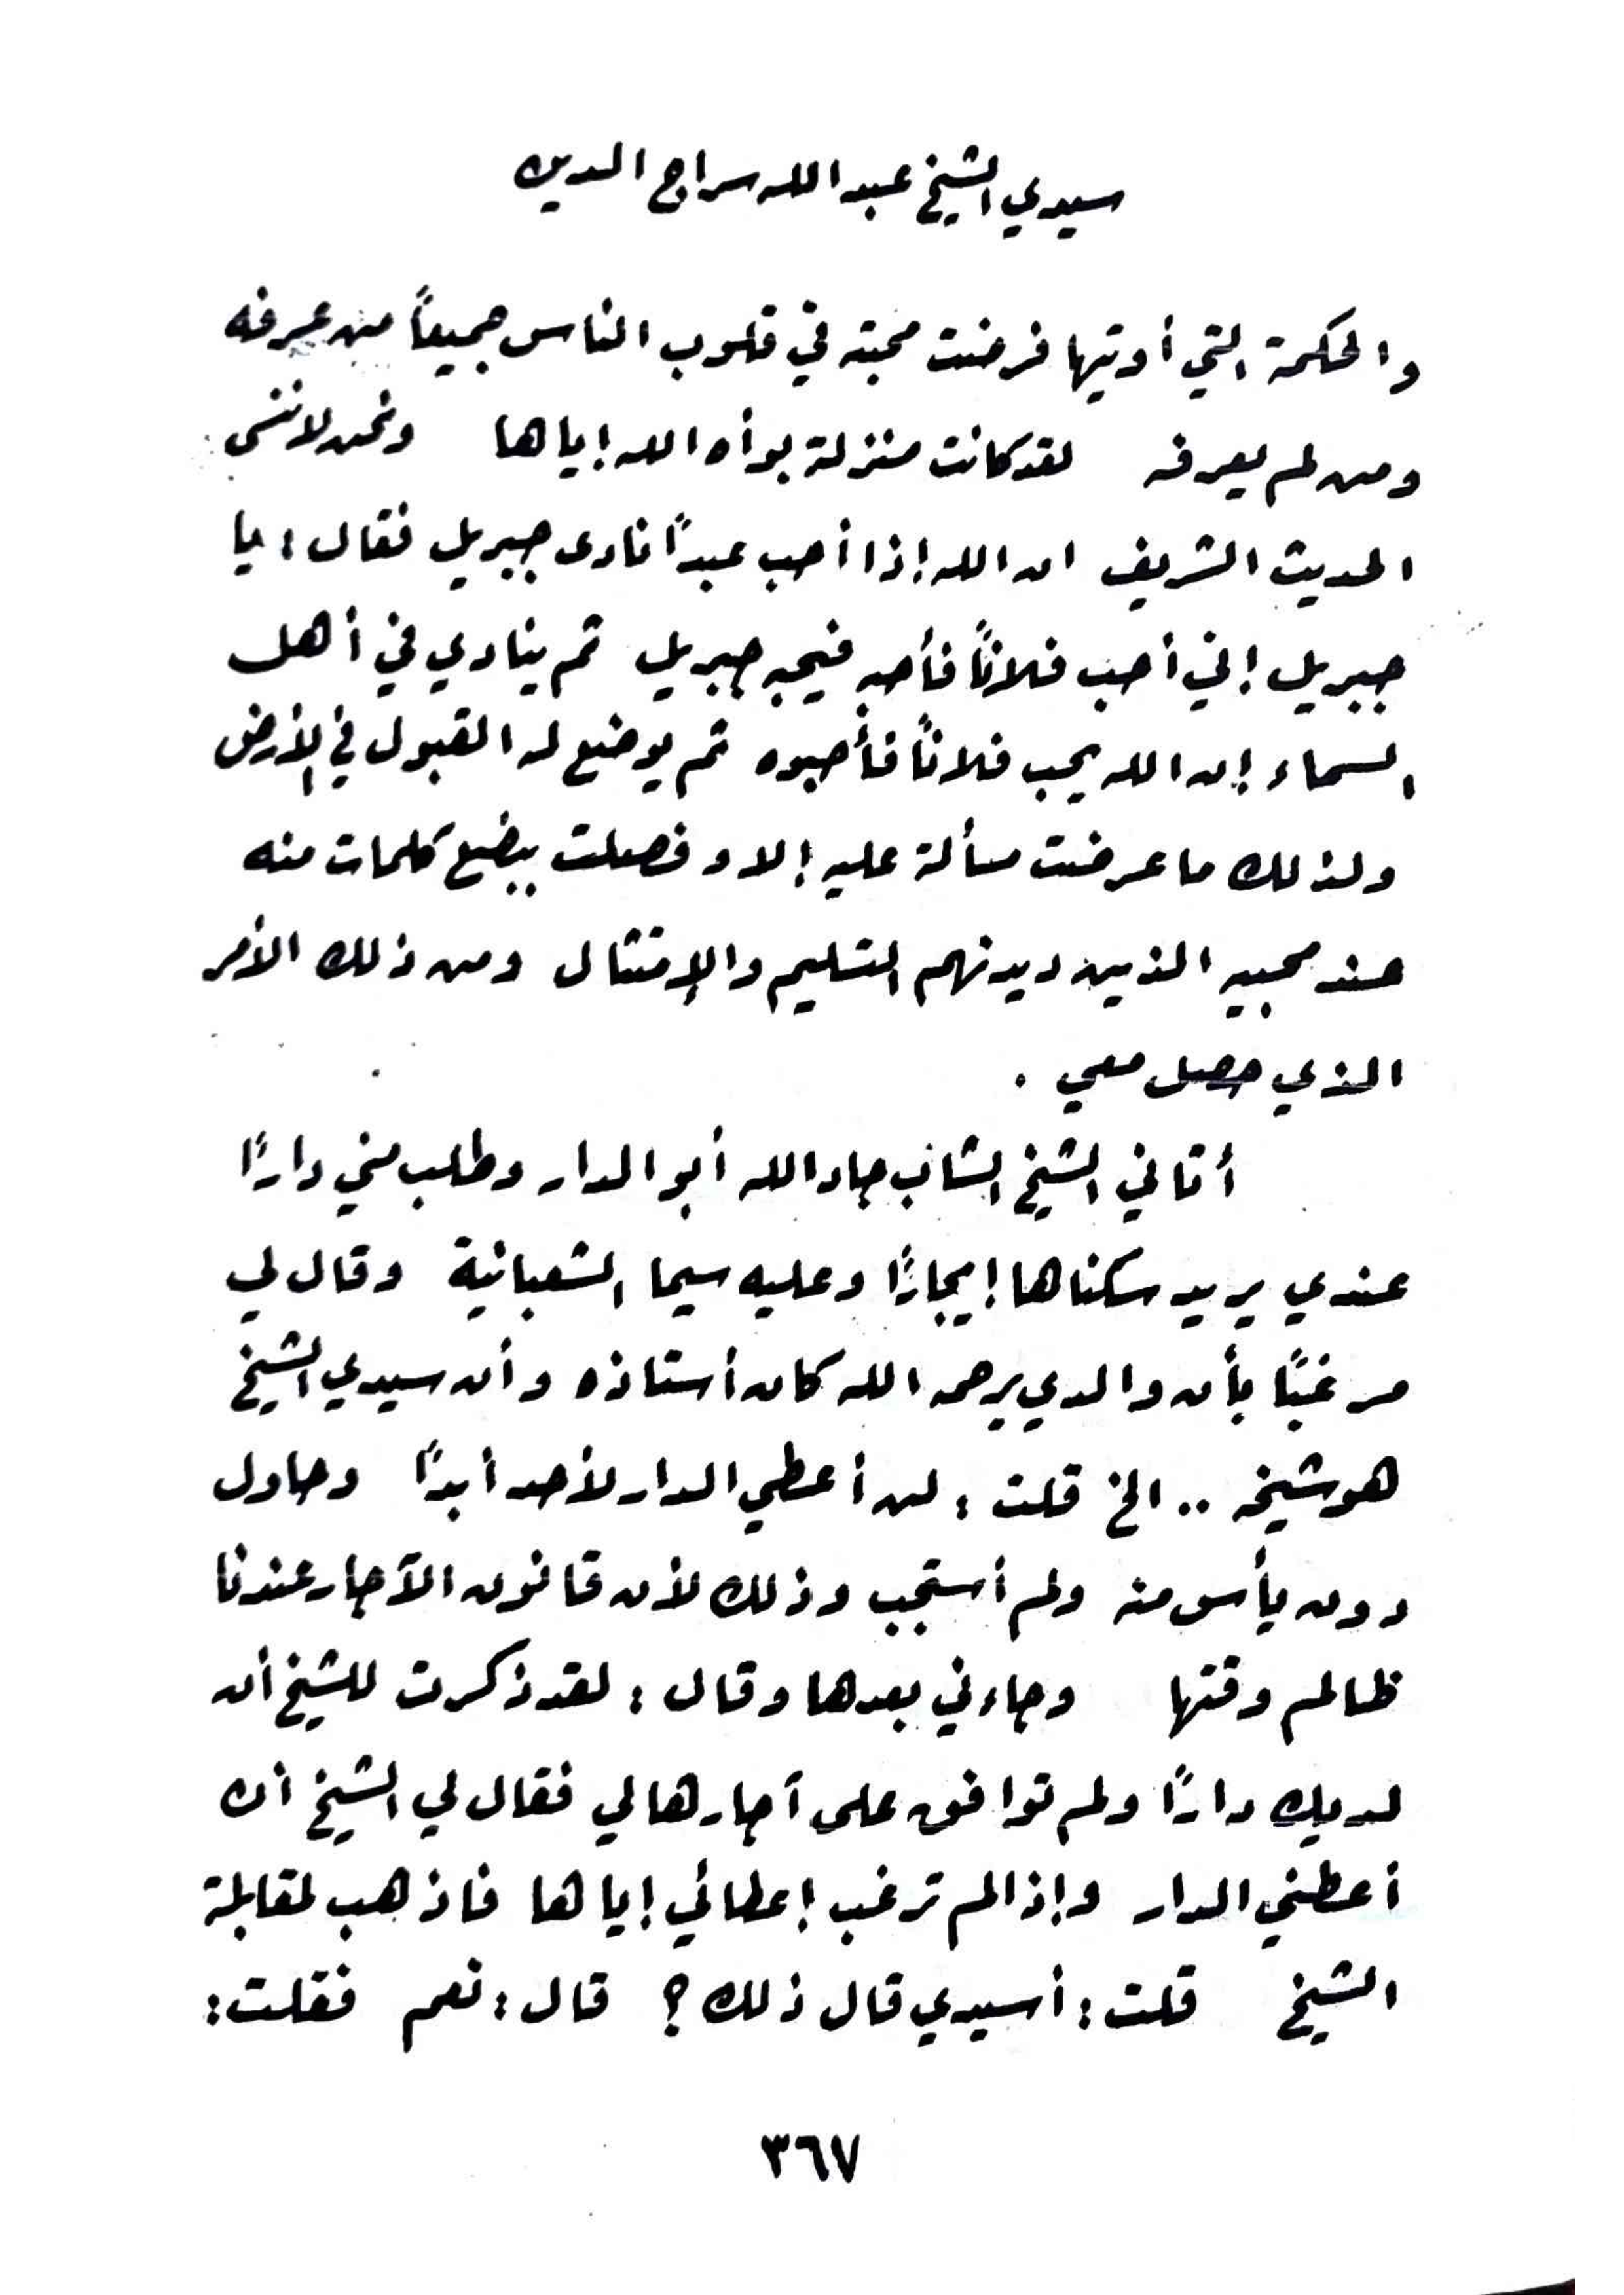 سيدي الشيخ عبد الله سراج الدين
والحكمة التي أوتيها فرضت محبته في قلوب الناس جميعاً من عرفه
ومن لم يعرفه لقد كانت منزلة بوأه الله إياها ونحن لا ننسى
الحديث الشريف ان الله إذا أحب عبداً نادى جبريل فقال : يا
جبريل إني أحب فلاناً فأحبه فيحبه جبريل ثم ينادي في أهل
السماء إن الله يحب فلاناً فأحبوه ثم يوضع له القبول في الأرض
ولذلك ما عرضت مسألة عليه إلا و فصلت ببضع كلمات منه
عند محبيه الذين ديدنهم التسليم والإمتثال ومن ذلك الأمر
الذي حصل معي .
أتاني الشيخ الشاب جاد الله أبو الدار وطلب مني داراً
عندي يريد سكناها إيجاراً وعليه سيما الشعبانية وقال لي
مرغباً بأن والدي يرحمه الله كان أستاذه وأن سيدي الشيخ
هو شيخه .. الخ قلت : لن أعطي الدار لأحد أبداً وحاول
دون يأس منه ولم أستجب وذلك لأن قانون الآجار عندنا
ظالم وقتها وجاءني بعدها وقال : لقد ذكرت للشيخ أن
لديك داراً ولم توافق على آجارها لي فقال لي الشيخ أن
أعطني الدار وإذا لم ترغب إعطائي إياها فاذهب لمقابلة
الشيخ قلت : أسيدي قال ذلك ؟ قال : نعم فقلت :
٣٦٧